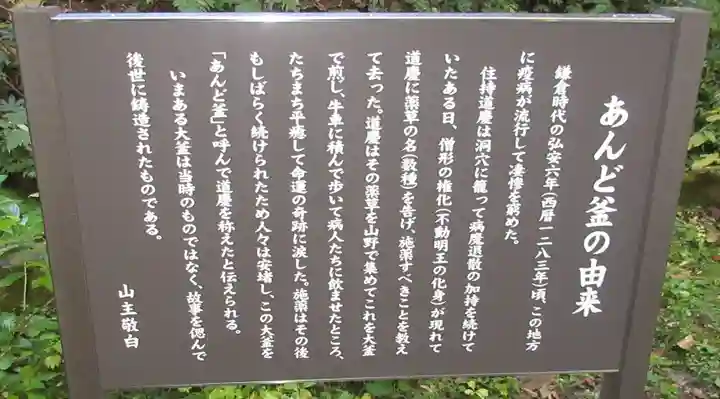 あんど釜の由来
鎌倉時代の弘安六年(西暦一二八三年)頃、この地方
に疫病が流行して凄惨を窮めた。
住持道慶は洞穴に籠って病魔退散の加持を続けて
いたある日、僧形の権化(不動明王の化身)が現れて
道慶に薬草の名(数種)を告げ、施薬すべきことを教え
て去った。道慶はその薬草を山野で集めてこれを大釜
で煎し、牛車に積んで歩いて病人たちに飲ませたところ、
たちまち平癒して命運の奇跡に涙した。施薬はその後
もしばらく続けられたため人々は安堵し、この大釜を
「あんど釜」と呼んで道慶を称えたと伝えられる。
いまある大釜は当時のものではなく、故事を偲んで
後世に鋳造されたものである。
山主敬白